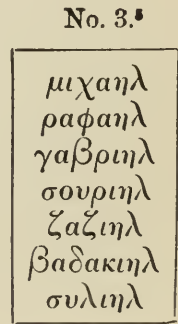 No. 3.⁵
μιχαηλ
ραφαηλ
γαβριηλ
σουριηλ
ζαζιηλ
βαδακιηλ
συλιηλ